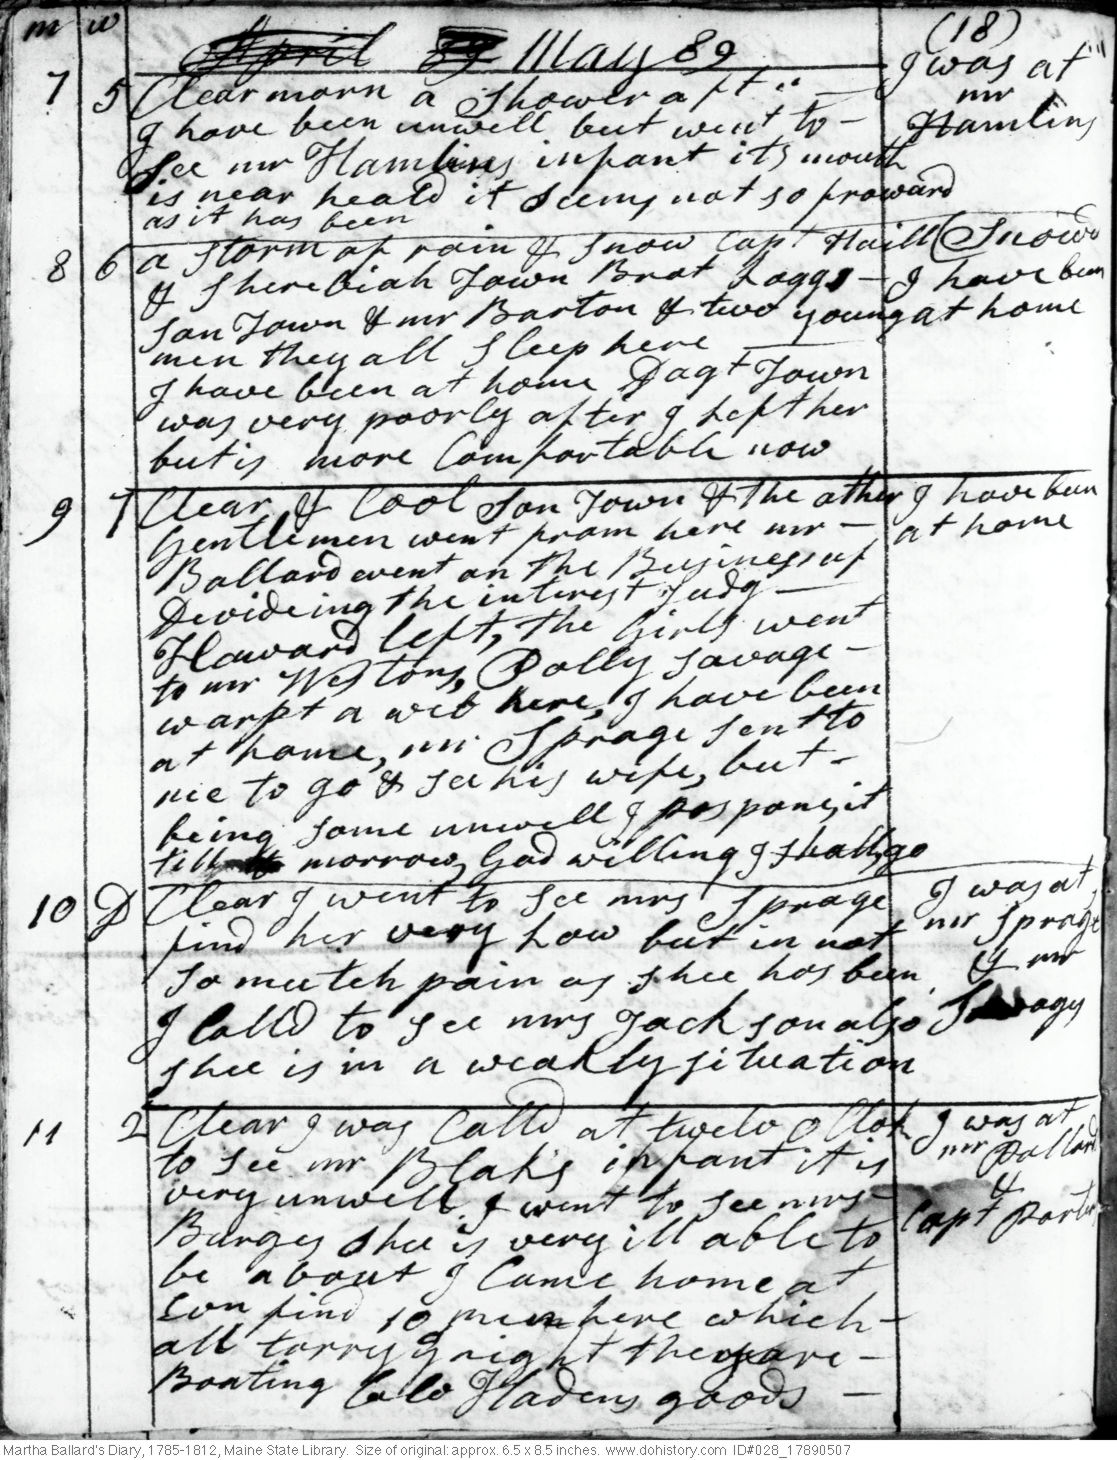 m w
April 89 May 89
(18)
7 5 Clear morn a Shower aft" —
I have been unwell but went to —
See mr Hamlins infant its mouth
is near heald it Seems not so froward
as it has been
I was at
mr
Hamlins
8 6 a storm of rain & snow Capt Haill
& Sherebiah Town Brot Loggs —
son Town & mr Barton & two young
men they all Sleep here
I have been at home Dagt Town
was very poorly after I left her
but is more Comfortable now
(Snowd
I have been
at home
9 7 Clear & Cool Son Town & the other
Gentlemen went from here mr —
Ballard went on the Business of
Devideing the interest Judg —
Howard left, the Girls went
to mr Westons, Polly Savage —
warpt a web here, I have been
at home, mr Sprage sent to
me to go & see his wife, but —
being some unwell I pospone, it
till morrow, God willing I shall, go
I have been
at home
10 D Clear I went to see mrs Sprage
find her very Low but in not
So mutch pain as shee has been
I Calld to see mrs Jackson also
shee is in a weakly situation
I was at
mr Sprage
& mr
Savages
11 2 Clear I was Calld at twelv o Clok
to see mr Blak's infant it is
very unwell. I went to see mrs
Burges shee is very ill able to
be about I Came home at
son find 10 men here which —
all tarry g night they are —
Boating Colo Hadens goods —
I was at
mr Pollard
&
Capt Porter
Martha Ballard's Diary, 1785-1812, Maine State Library. Size of original: approx. 6.5 x 8.5 inches. www.dohistory.com ID#028_17890507